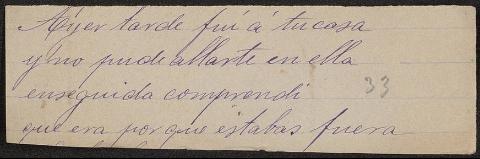 Ayer tarde fui á tu casa
y no pude allarte en ella
enseguida comprendi 33
que era por que estabas fuera